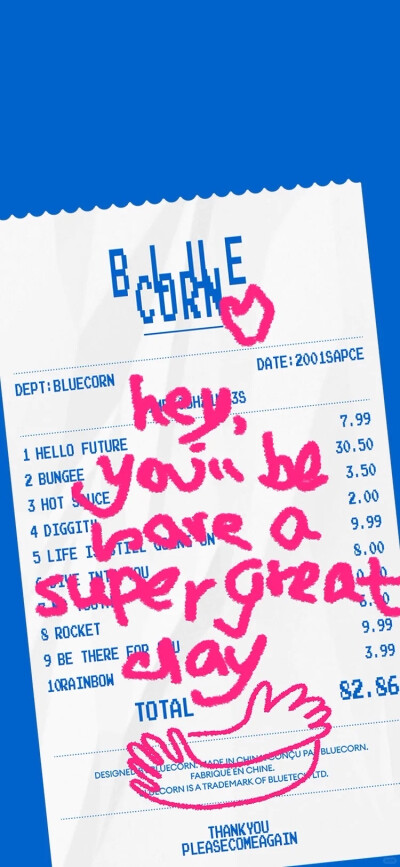 BLUE
CORN
DATE:2001SAPCE
DEPT:BLUECORN
hey,
1 HELLO FUTURE 7.99
2 BUNGEE 30.50
you'll be
3 HOT SAUCE 3.50
4 DIGGITY 2.00
have a
5 LIFE IS STILL GOING ON 9.99
6 DIVE INTO YOU 8.00
super great
8 ROCKET
9 BE THERE FOR YOU 9.99
day
10RAINBOW 3.99
TOTAL 82.86
DESIGNED BLUECORN. MADE IN CHINA CONÇU PAR BLUECORN.
FABRIQUE EN CHINE.
BLUECORN IS A TRADEMARK OF BLUETECH LTD.
THANKYOU
PLEASECOMEAGAIN